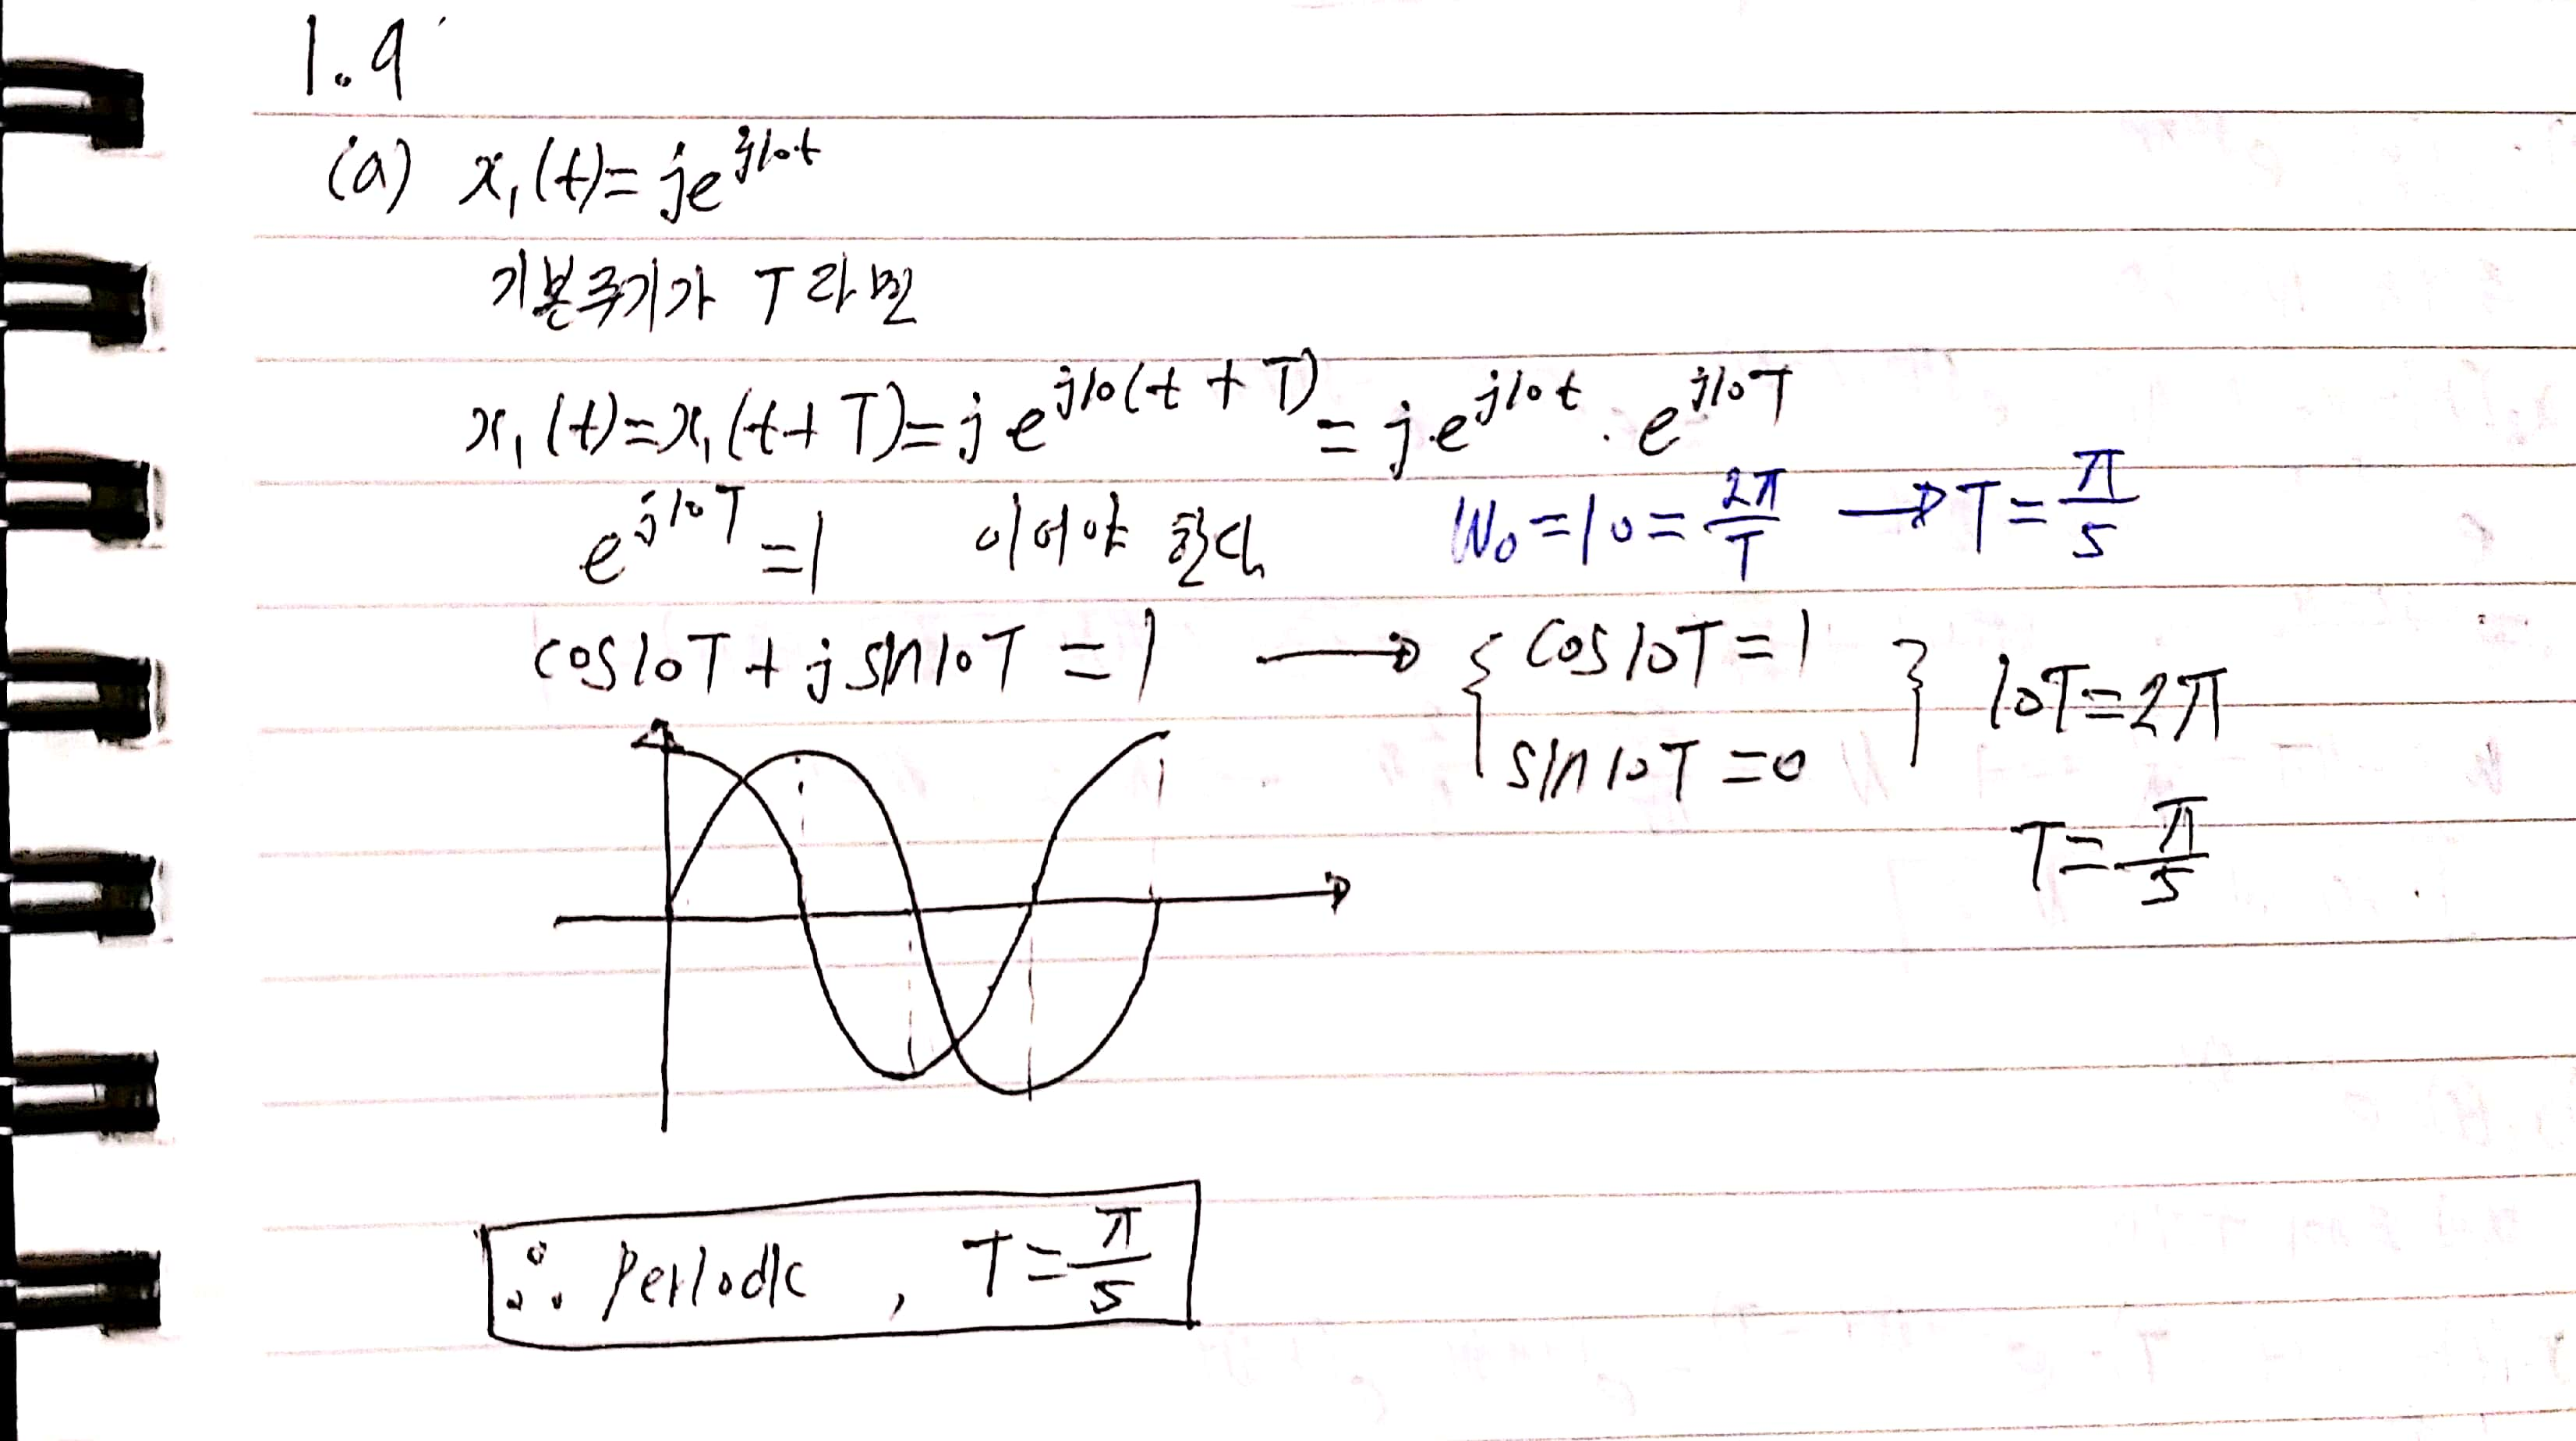 1.9
(a) x₁(t)=je^{j10t}
기본주기가 T라면
x₁(t)=x₁(t+T)=je^{j10(t+T)}=j·e^{j10t}·e^{j10T}
e^{j10T}=1 이어야 한다 W₀=10=2π/T → T=π/5
cos10T+jsin10T=1 → { cos10T=1 } 10T=2π
sin10T=0
T=π/5
∴ Periodic, T=π/5